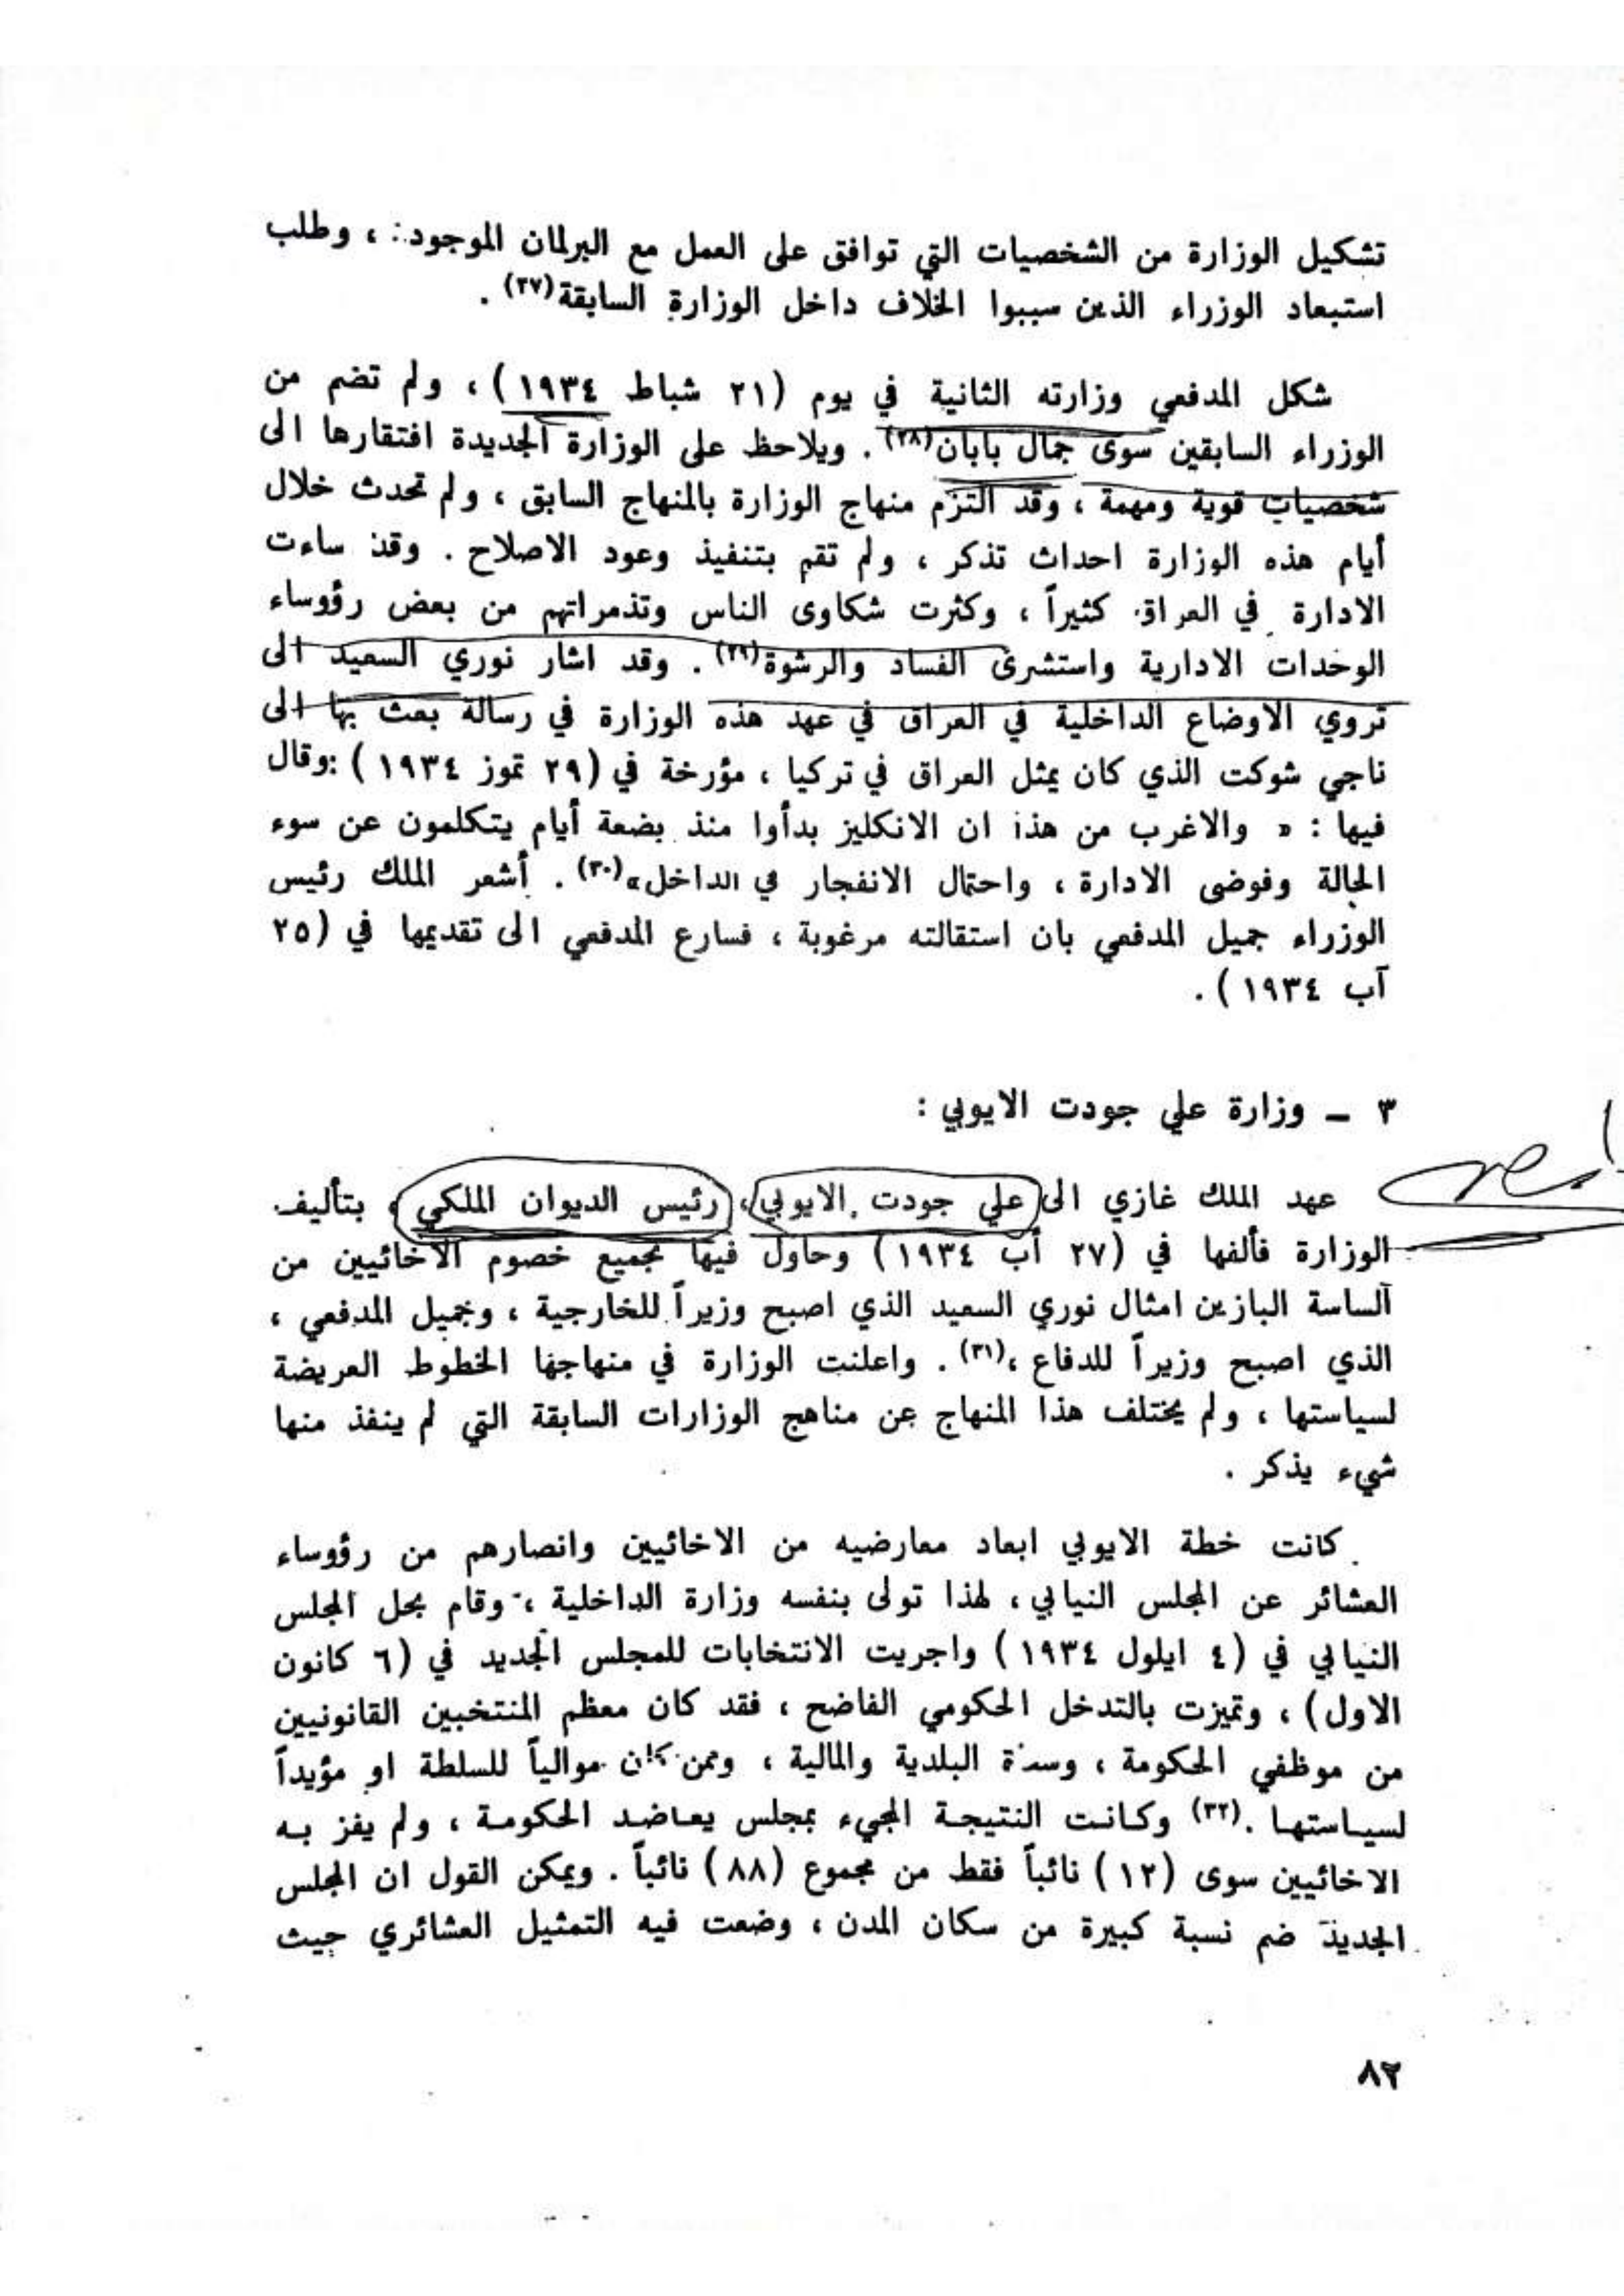 تشكيل الوزارة من الشخصيات التي توافق على العمل مع البرلمان الموجود ، وطلب
استبعاد الوزراء الذين سببوا الخلاف داخل الوزارة السابقة(٢٧) .
شكل المدفعي وزارته الثانية في يوم (٢١ شباط ١٩٣٤) ، ولم تضم من
الوزراء السابقين سوى جمال بابان(٢٨) . ويلاحظ على الوزارة الجديدة افتقارها الى
شخصيات قوية ومهمة ، وقد التزم منهاج الوزارة بالمنهاج السابق ، ولم تحدث خلال
أيام هذه الوزارة احداث تذكر ، ولم تقم بتنفيذ وعود الاصلاح . وقد ساءت
الادارة في العراق كثيراً ، وكثرت شكاوى الناس وتذمراتهم من بعض رؤوساء
الوحدات الادارية واستشرى الفساد والرشوة(٢٩) . وقد اشار نوري السعيد الى
تروي الاوضاع الداخلية في العراق في عهد هذه الوزارة في رسالة بعث بها الى
ناجي شوكت الذي كان يمثل العراق في تركيا ، مؤرخة في (٢٩ تموز ١٩٣٤) :وقال
فيها : « والاغرب من هذا ان الانكليز بدأوا منذ بضعة أيام يتكلمون عن سوء
الحالة وفوضى الادارة ، واحتمال الانفجار في الداخل»(٣٠) . أشعر الملك رئيس
الوزراء جميل المدفعي بان استقالته مرغوبة ، فسارع المدفعي الى تقديمها في (٢٥
آب ١٩٣٤) .
٣ – وزارة علي جودت الايوبي :
عهد الملك غازي الى علي جودت الايوبي، رئيس الديوان الملكي ، بتأليف
الوزارة فألفها في (٢٧ أب ١٩٣٤) وحاول فيها تجميع خصوم الاخائيين من
الساسة البازين امثال نوري السعيد الذي اصبح وزيراً للخارجية ، وجميل المدفعي ،
الذي اصبح وزيراً للدفاع ،(٣١) . واعلنت الوزارة في منهاجها الخطوط العريضة
لسياستها ، ولم يختلف هذا المنهاج عن مناهج الوزارات السابقة التي لم ينفذ منها
شيء يذكر .
كانت خطة الايوبي ابعاد معارضيه من الاخائيين وانصارهم من رؤوساء
العشائر عن المجلس النيابي ، لهذا تولى بنفسه وزارة الداخلية ، وقام بحل المجلس
النيابي في (٤ ايلول ١٩٣٤) واجريت الانتخابات للمجلس الجديد في (٦ كانون
الاول) ، وتميزت بالتدخل الحكومي الفاضح ، فقد كان معظم المنتخبين القانونيين
من موظفي الحكومة ، البلدية والمالية ، وممن كان موالياً للسلطة او مؤيداً
لسياستها .(٣٢) وكانت النتيجة المجيء بمجلس يعاضد الحكومة ، ولم يفز به
الاخائيين سوى (١٢) نائباً فقط من مجموع (٨٨) نائباً . ويمكن القول ان المجلس
الجديد ضم نسبة كبيرة من سكان المدن ، وضعت فيه التمثيل العشائري حيث
٨٢